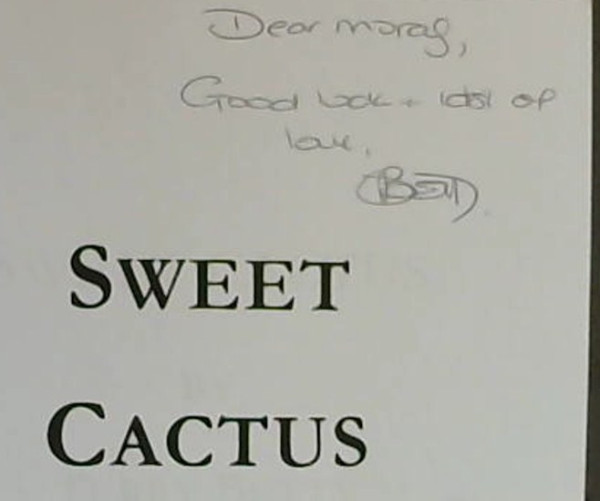 Dear morag,
Good luck + lots of
love,
SWEET
CACTUS